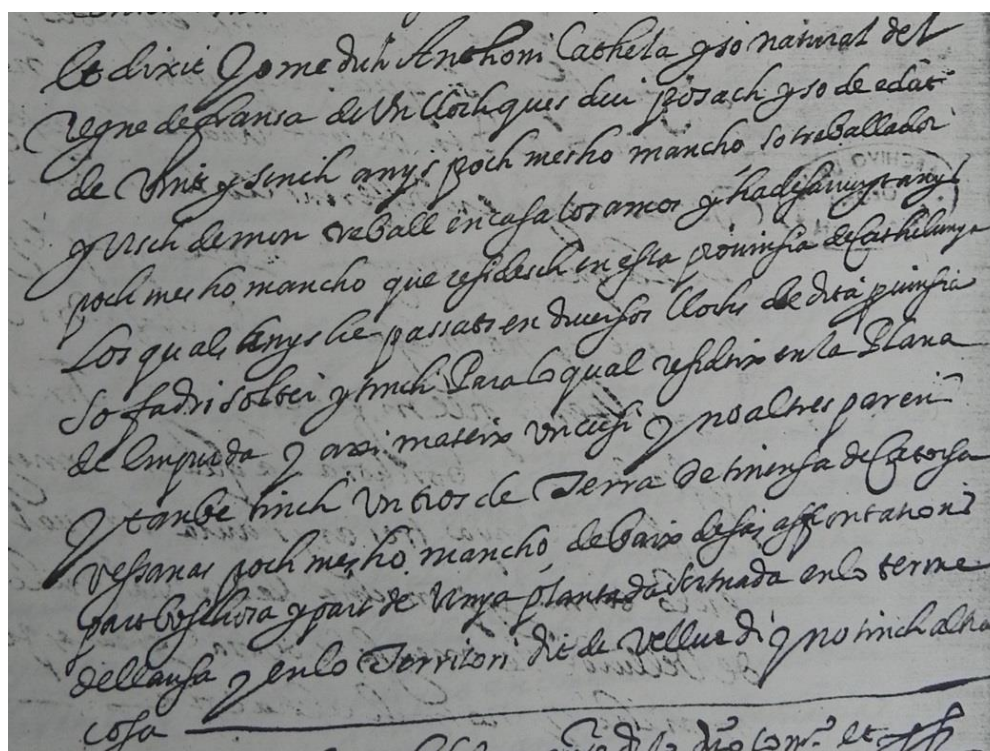 Et dixit Jo me dich Anthoni Cathela y so natural del
regne de fransa de Un lloch ques diu posach y so de edat
de Vint y sinch anys poch mes ho mancho so treballador
y Visch de mon treball en casa los amos y ha desavuyt anys
poch mes ho mancho que residesch en esta provinsia de Cathelunya
Los quals Anys he passats en diversos llochs de dita provinsia
so fadri solter y tinch Para lo qual residix en la Plana
de Empurda y axi mateix Un cusi y no altres parens
y tambe tinch Un tros de Terra de tinensa de Catorsa
vessanas poch mes ho mancho debaix de sas affrontations
part boschosa y part de Vinya plantada sitnada en lo terme
de llansa y en lo Territori dit de Vellur di y no tinch altra
cosa